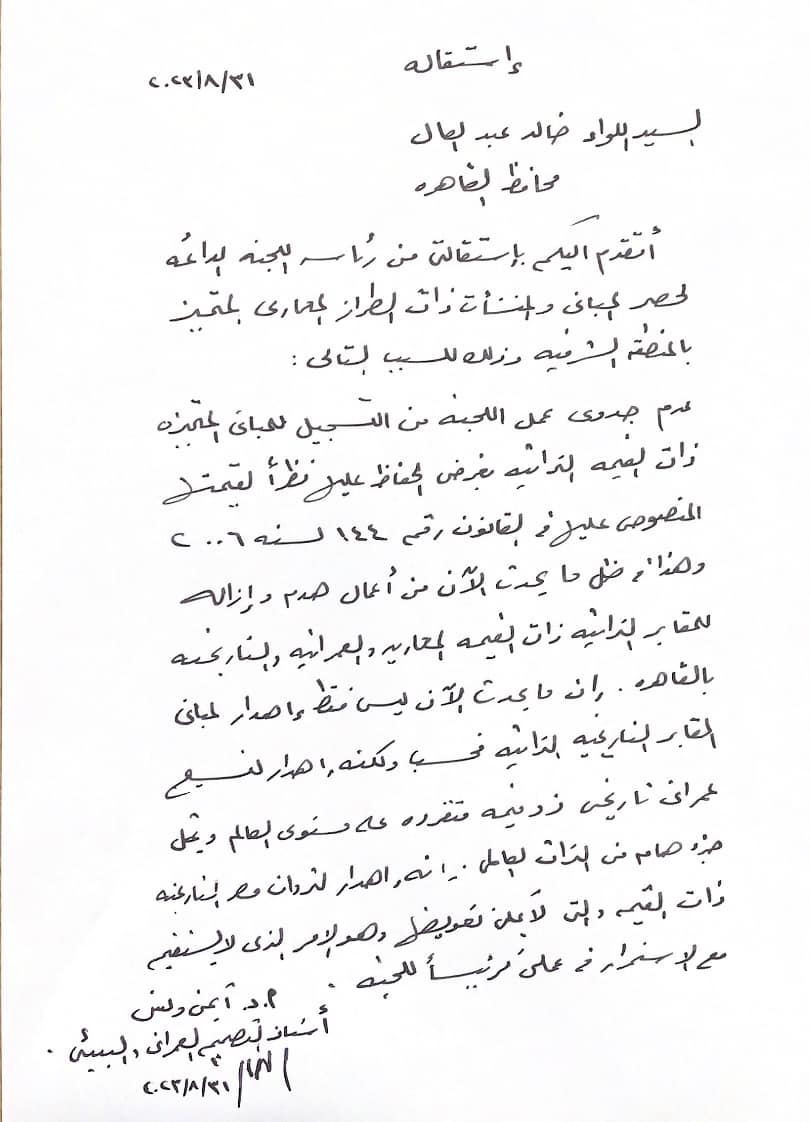 إستقاله
٢٠٢٣/٨/٣١
السيد اللواء خالد عبد العال
محافظ القاهره
أتقدم اليكم بإستقالتى من رئاسه اللجنه الدائمه
لحصر المبانى والمنشأت ذات الطراز المعمارى المتميز
بالمنطقه الشرقيه وذلك للسبب التالى :
عدم جدوى عمل اللجنه من التسجيل للمبانى المتميزه
ذات القيمه التراثيه بغرض الحفاظ عليها نظرأ لقيمتها
المنصوص عليها فى القانون رقم ١٤٤ لسنه ٢٠٠٦
وهذا فى ظل ما يحدث الآن من أعمال هدم وإزاله
للمقابر التراثيه ذات القيمه المعماريه والعمرانيه والتاريخيه
بالقاهره . إن ما يحدث الآن ليس فقط إهدار لمبانى
المقابر التاريخيه التراثيه فحسب ولكنه إهدار لنسيج
عمرانى تاريخى ذو قيمه متفرده على مستوى العالم ويمثل
جزء هام من التراث العالمى . إنه إهدار لثروات مصر التاريخيه
ذات القيمه والتى لا يمكن تعويضها وهو الامر الذى لا يستقيم
مع الاستمرار فى عملى كرئيسأ للجنه .
أ.د. أيمن ونس
أستاذ التصميم العمرانى والبيئى .
٢٠٢٣/٨/٣١